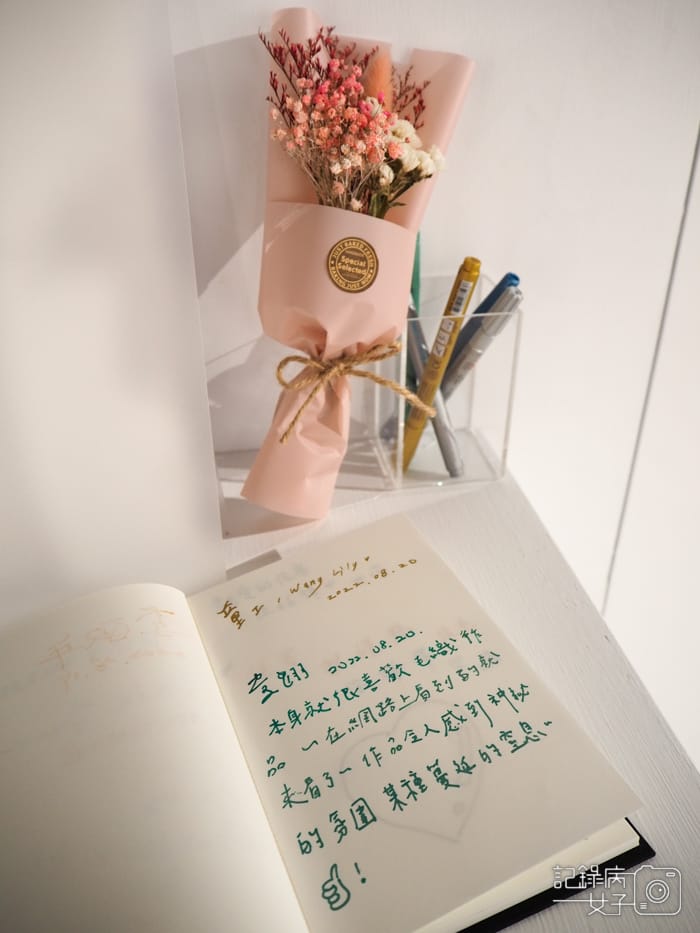 JUST BAKED FRESH
Special
Selected
BAKING JUST NOW
Wang Lily
2022.08.20
2022.08.20.
本身就很喜歡毛織作
品，在網路上看到的就
來看了，作品令人感到神秘
的氛圍 某種蔓延的空息~
!
記錄病
女子